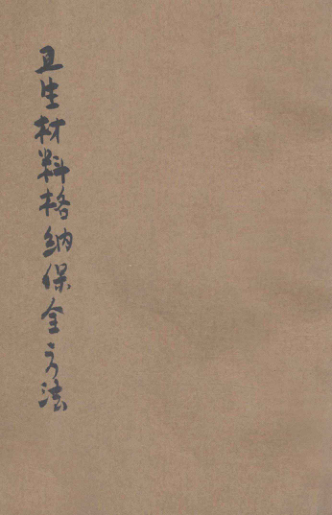 卫生材料格纳保全方法